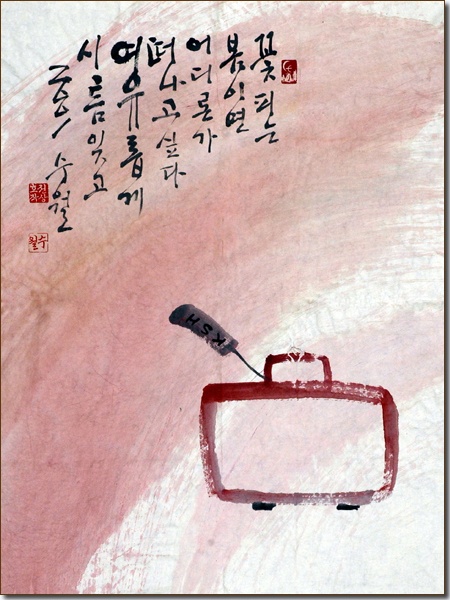 꽃피는
봄이면
어디론가
떠나고 싶다
여유롭게
시름 잊고
수월
수월
KSH